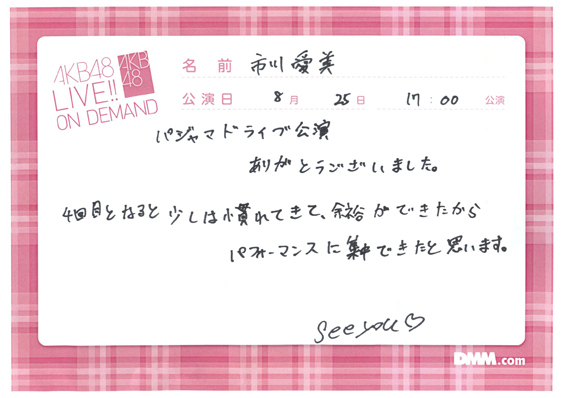 AKB48
LIVE!!
ON DEMAND
AKB
48
名前 市川愛美
公演日 8月 25日 17:00 公演
パジャマドライブ公演
ありがとうございました。
4回目となると少しは慣れてきて、余裕ができたから
パフォーマンスに集中できたと思います。
See you♡
DMM.com